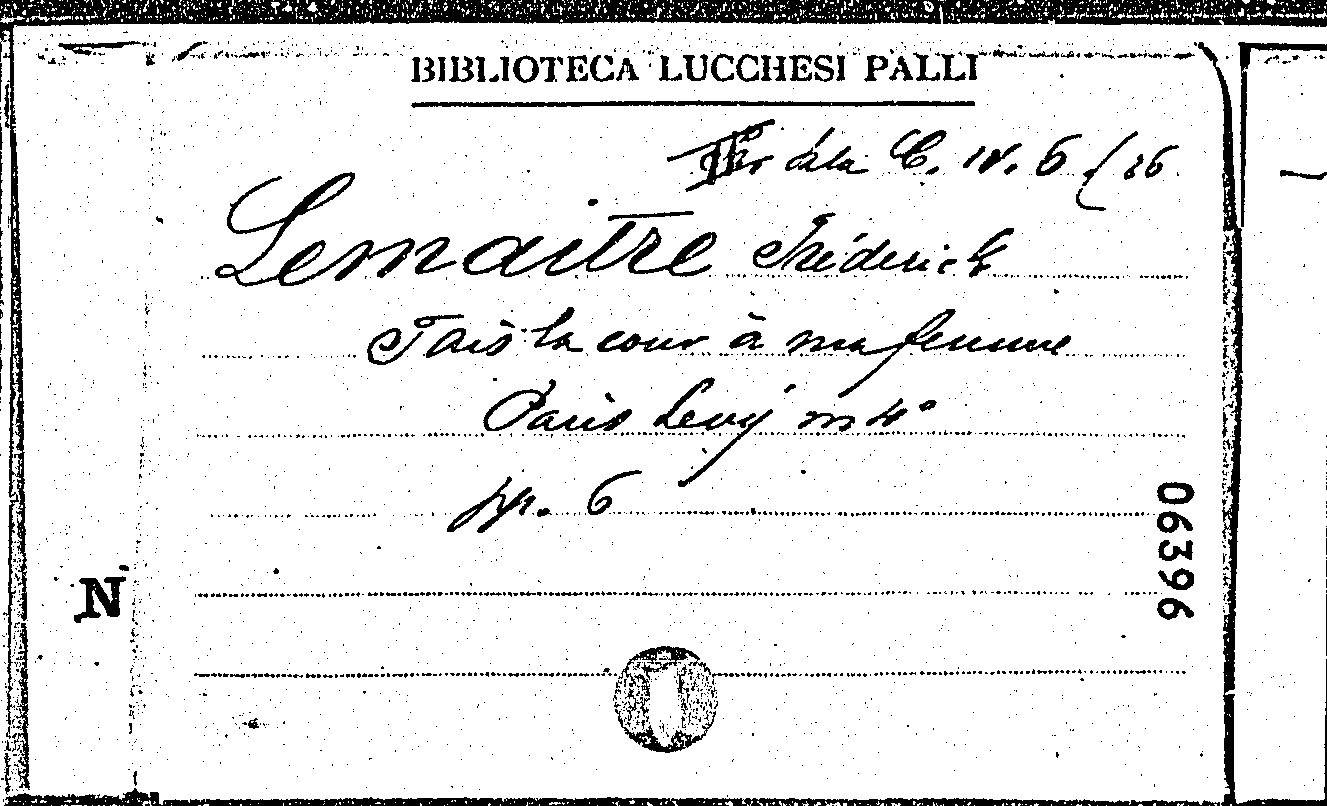 BIBLIOTECA LUCCHESI PALLI
Sala C. IV. 6 (26
Lemaitre Fréderick
Fais la cour à ma femme
Paris Levy in 4°
pp. 6
06396
N